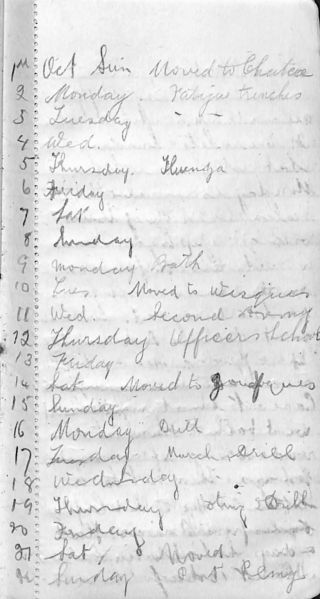 1st Oct Sun Moved to Chateau
2 Monday. Fatigue trenches
3 Tuesday - -
4 Wed.
5 Thursday.
6 Friday
7 Sat
8 Sunday
9 Monday Bath
10 Tues Moved to Wisques
11 Wed. Second Army
12 Thursday Officers School
13 Friday
14 Sat Moved to
15 Sunday
16 Monday Drill
17 Tuesday March Drill
18 Wednesday
19 Thursday Drill
20 Friday
21 Sat, Moved
22 Sunday